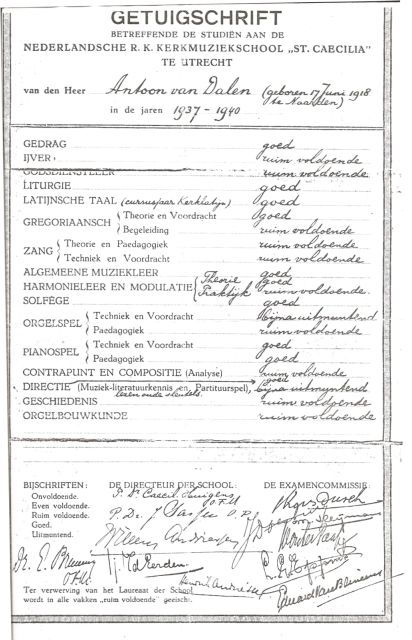 GETUIGSCHRIFT
BETREFFENDE DE STUDIËN AAN DE
NEDERLANDSCHE R. K. KERKMUZIEKSCHOOL „ST. CAECILIA"
TE UTRECHT
van den Heer Antoon van Dalen (geboren 17 Juni 1918
te Naarden)
in de jaren 1937 - 1940
GEDRAG goed
IJVER ruim voldoende
GODSDIENSTLEER ruim voldoende
LITURGIE goed
LATIJNSCHE TAAL (cursusjaar Kerklatijn) goed
GREGORIAANSCH { Theorie en Voordracht goed
Begeleiding ruim voldoende
ZANG { Theorie en Paedagogiek ruim voldoende
Techniek en Voordracht ruim voldoende
ALGEMEENE MUZIEKLEER goed
HARMONIELEER EN MODULATIE { Theorie goed
Praktijk ruim voldoende
SOLFÈGE goed
ORGELSPEL { Techniek en Voordracht bijna uitmuntend
Paedagogiek ruim voldoende
PIANOSPEL { Techniek en Voordracht goed
Paedagogiek goed
CONTRAPUNT EN COMPOSITIE (Analyse) ruim voldoende
goed
DIRECTIE (Muziek-literatuurkennis en Partituurspel) bijna uitmuntend
lezen oude sleutels
GESCHIEDENIS ruim voldoende
ORGELBOUWKUNDE ruim voldoende
BIJSCHRIFTEN: DE DIRECTEUR DER SCHOOL: DE EXAMENCOMMISSIE:
Onvoldoende.
Even voldoende.
Ruim voldoende.
Goed.
Uitmuntend.
P. Dr. Caecil. Huigens
O.F.M.
P. Dr. J. O.P.
Willem Andriessen
Dr. E. Bruning
O.F.M.
Hendrik Andriessen
Ter verwerving van het Laureaat der School
wordt in alle vakken „ruim voldoende" geëischt.